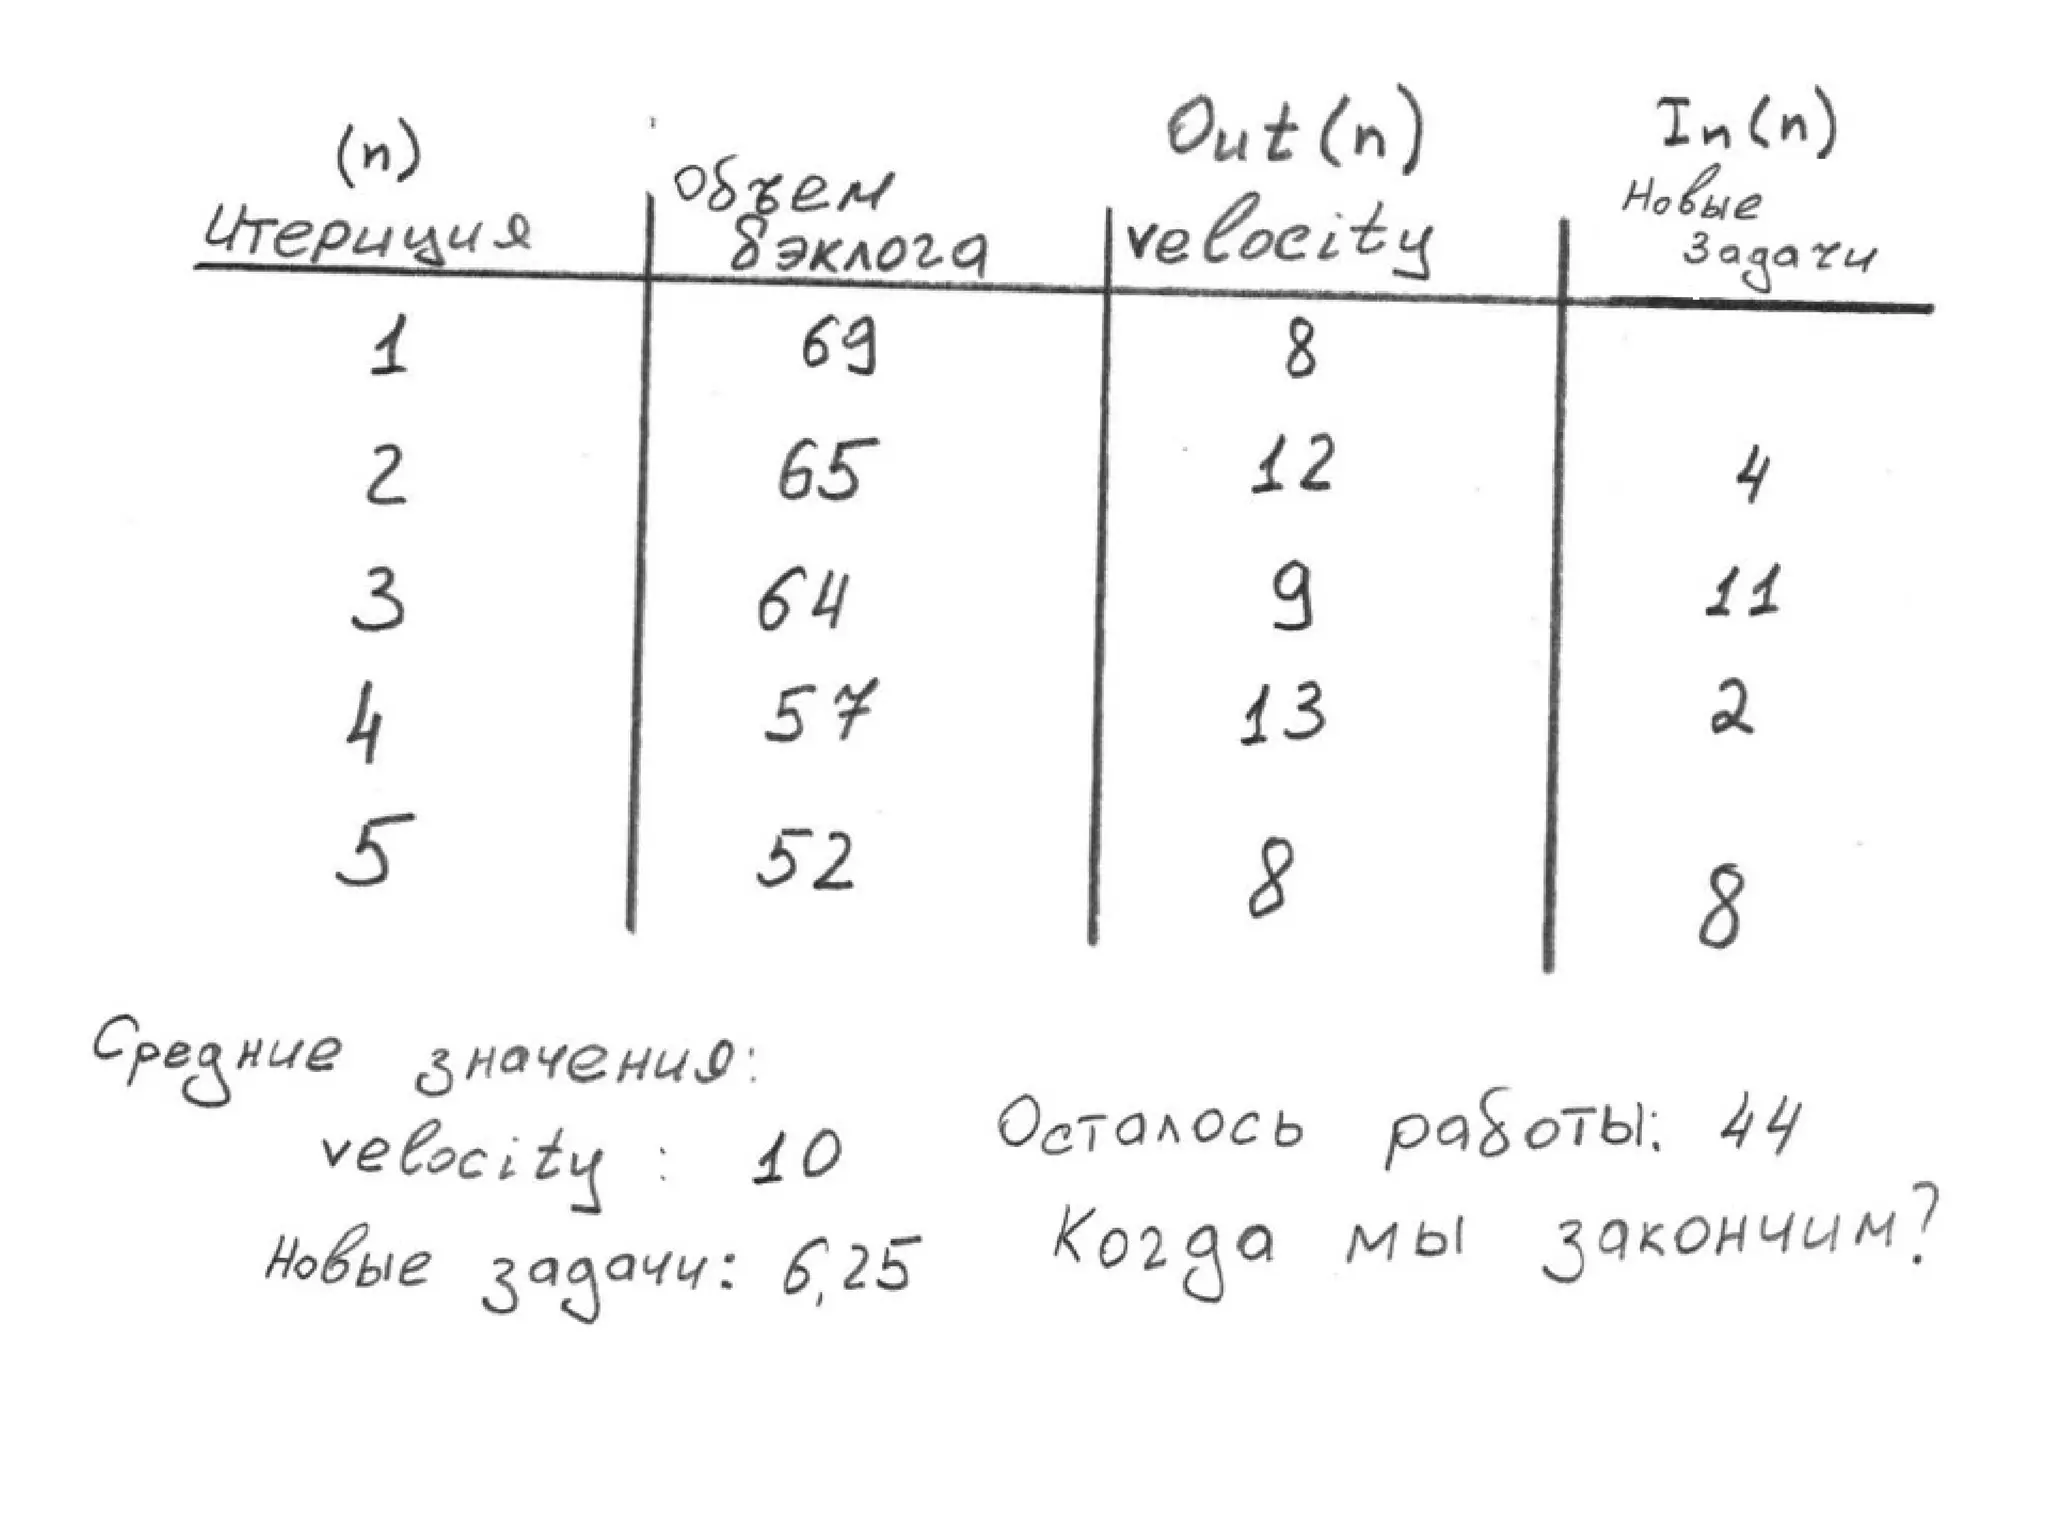 (n) Out(n) In(n)
Итериция Объем бэклога velocity Новые задачи
1 69 8
2 65 12 4
3 64 9 11
4 57 13 2
5 52 8 8
Средние значения:
velocity : 10
Новые задачи: 6,25
Осталось работы: 44
Когда мы закончим?